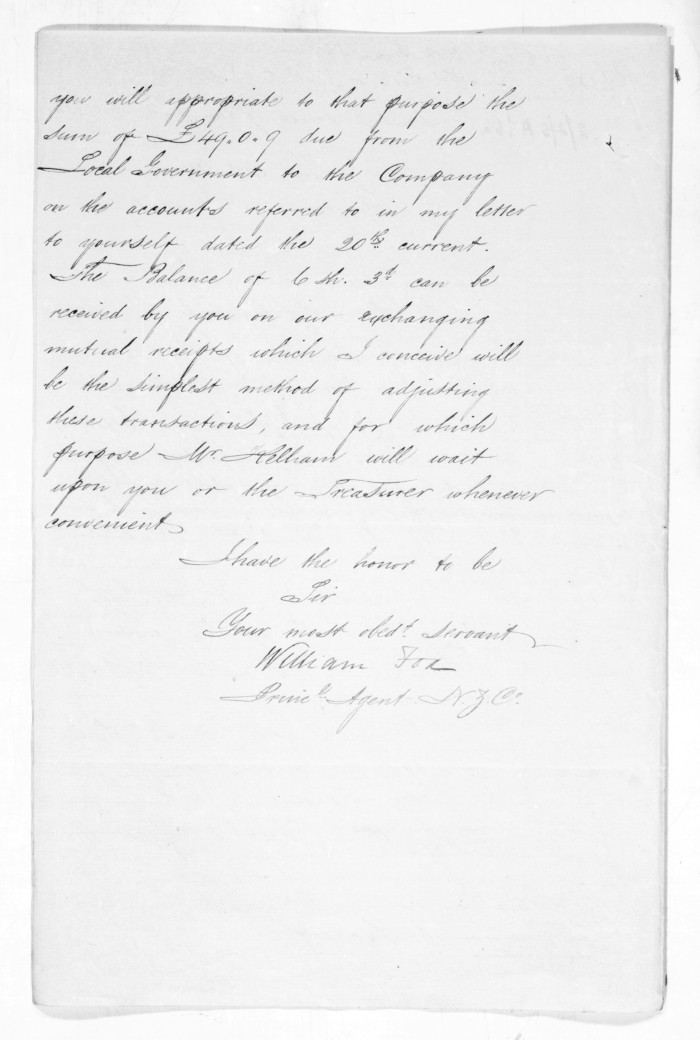 you will appropriate to that purpose the
sum of £49.0.9 due from the
Local Government to the Company
on the accounts referred to in my letter
to yourself dated the 20th current.
The Balance of 6 sh. 3d can be
received by you on our exchanging
mutual receipts which I conceive will
be the simplest method of adjusting
these transactions, and for which
purpose Mr. Kelham will wait
upon you or the Treasurer whenever
convenient
I have the honor to be
Sir
Your most obedt servant
William Fox
Princl Agent N.Z.Co.